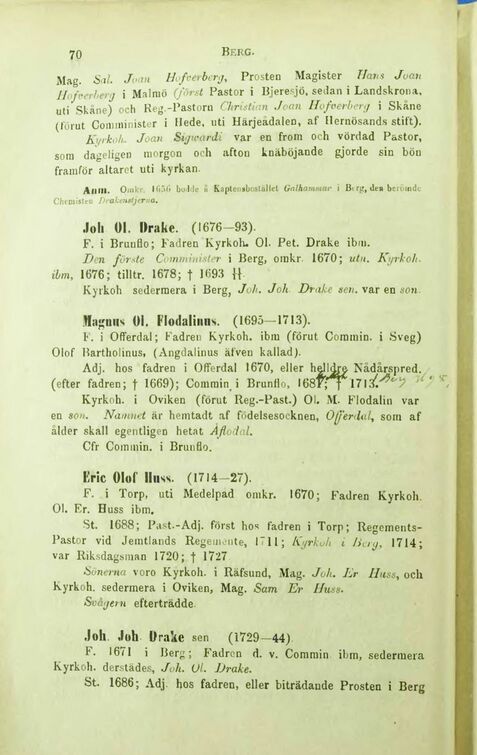 70 BERG.
Mag. Sal. Joan Hofverberg, Prosten Magister Hans Joan
Hofverberg i Malmö (först Pastor i Bjeresjö, sedan i Landskrona,
uti Skåne) och Reg.-Pastorn Christian Joan Hofverberg i Skåne
(förut Comminister i Hede, uti Härjeådalen, af Hernösands stift).
Kyrkoh. Joan Sigvardi var en from och vördad Pastor,
som dageligen morgon och afton knäböjande gjorde sin bön
framför altaret uti kyrkan.
Anm. Omkr. 1656 bodde å Kaptensbostället Galhammar i Berg, den berömde
Chemisten Drakenstjerna.
Joh Ol. Drake. (1676—93).
F. i Brunflo; Fadren Kyrkoh. Ol. Pet. Drake ibm.
Den förste Comminister i Berg, omkr. 1670; utn. Kyrkoh.
ibm, 1676; tilltr. 1678; † 1693
Kyrkoh sedermera i Berg, Joh. Joh. Drake sen. var en son.
Magnus Ol. Flodalinus. (1695—1713).
F. i Offerdal; Fadren Kyrkoh. ibm (förut Commin. i Sveg)
Olof Bartholinus, (Angdalinus äfven kallad).
Adj. hos fadren i Offerdal 1670, eller helldre Nådårspred.
(efter fadren; † 1669); Commin i Brunflo, † 1713. Berg
Kyrkoh. i Oviken (förut Reg.-Past.) Ol. M. Flodalin var
en son. Namnet är hemtadt af födelsesocknen, Offerdal, som af
ålder skall egentligen hetat Aflodal.
Cfr Commin. i Brunflo.
Eric Olof Huss. (1714—27).
F. i Torp, uti Medelpad omkr. 1670; Fadren Kyrkoh.
Ol. Er. Huss ibm.
St. 1688; Past.-Adj. först hos fadren i Torp; Regements-
Pastor vid Jemtlands Regemente, 1711; Kyrkoh i Berg, 1714;
var Riksdagsman 1720; † 1727
Sönerna voro Kyrkoh. i Räfsund, Mag. Joh. Er Huss, och
Kyrkoh. sedermera i Oviken, Mag. Sam Er Huss.
Svågern efterträdde.
Joh Joh Drake sen (1729—44)
F. 1671 i Berg; Fadren d. v. Commin ibm, sedermera
Kyrkoh. derstädes, Joh. Ol. Drake.
St. 1686; Adj. hos fadren, eller biträdande Prosten i Berg